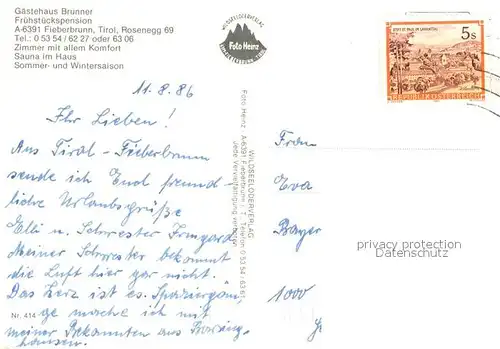 Gästehaus Brunner
Frühstückspension
A-6391 Fieberbrunn, Tirol, Rosenegg 69
Tel.: 0 53 54 / 62 27 oder 63 06
Zimmer mit allem Komfort
Sauna im Haus
Sommer- und Wintersaison
WILDSEELODERVERLAG
Foto Heinz
5s
REPUBLIK ÖSTERREICH
11.8.86
Ihr Lieben!
Aus Tirol - Fieberbrunn
sende ich Euch freund-
liche Urlaubsgrüße
Elli u. Schwester Irmgard
Meiner Schwester bekommt
die Luft hier gar nicht.
Das Herz ist es. Spazieren
ge mache ich mit
meiner Bekannten aus
hausen.
Nr. 414
WILDSEELODERVERLAG
Foto Heinz · A-6391 Fieberbrunn i. T. Telefon 0 53 54 / 63 61
Jede Vervielfältigung verboten
Frau
Eva
Bayer
1000
privacy protection
Datenschutz